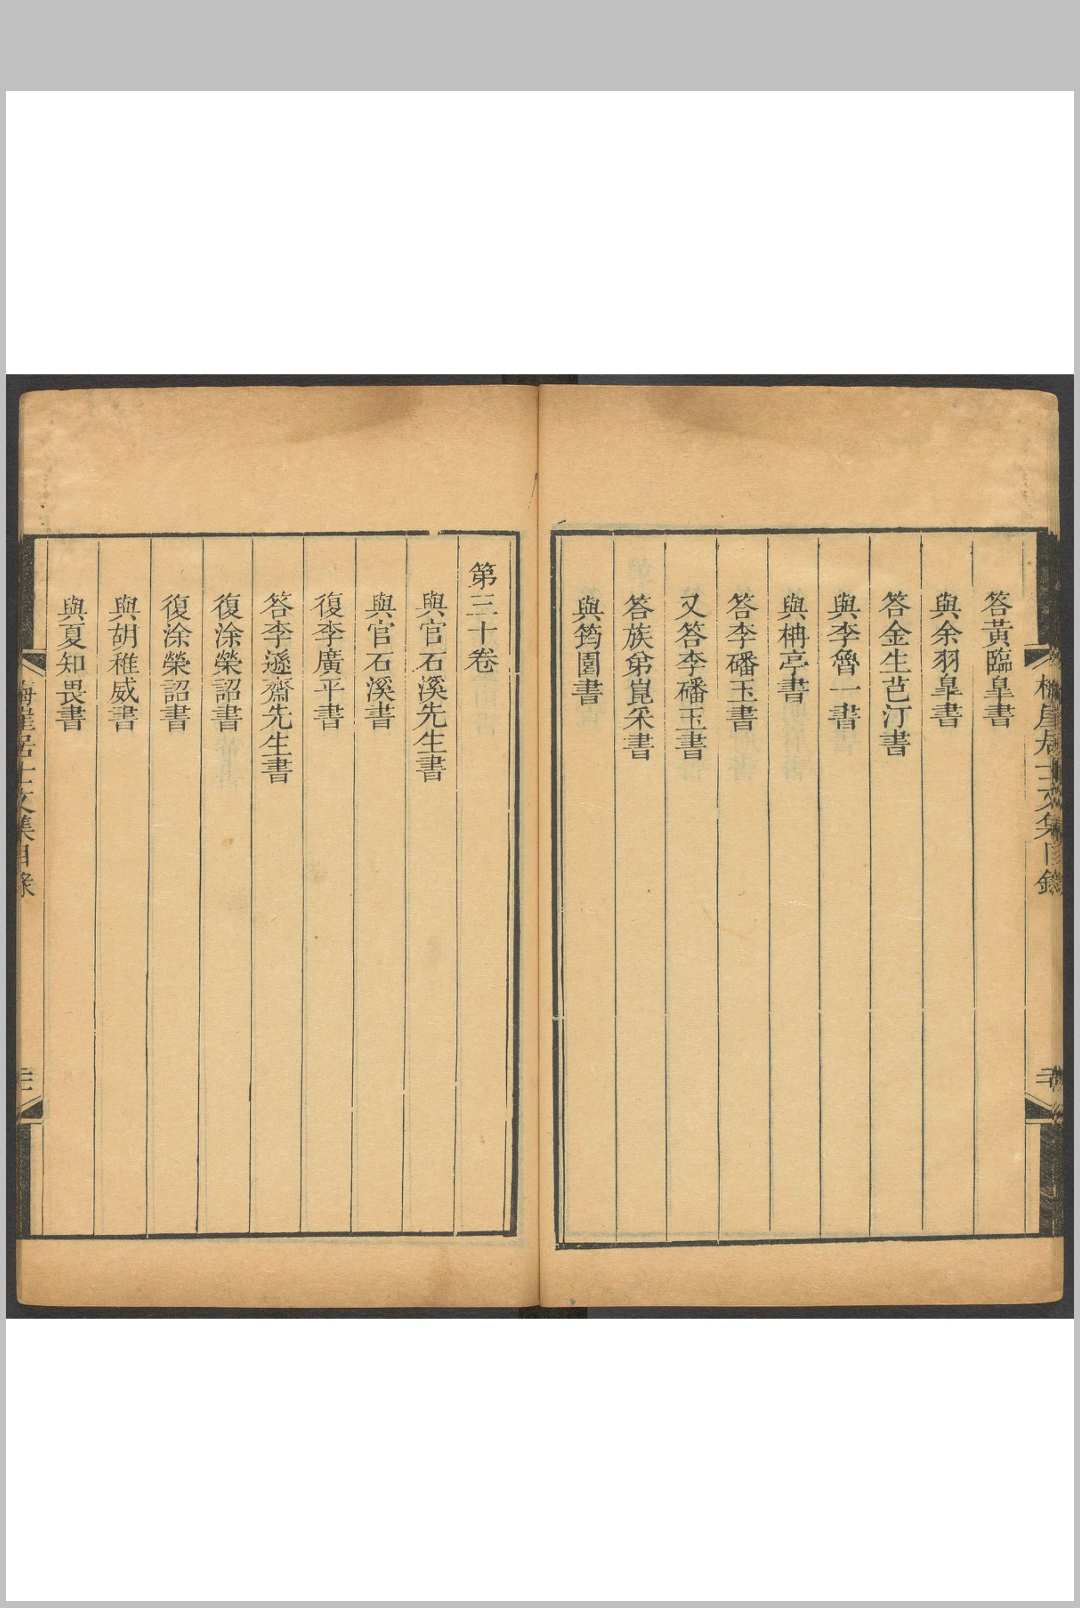 梅崖居士文集目錄
答黃臨皐書
與余羽皐書
答金生芑汀書
與李魯一書
與柟亭書
答李磻玉書
又答李磻玉書
答族弟崑采書
與筠園書
第三十卷
與官石溪先生書
與官石溪書
復李廣平書
答李遜齋先生書
復涂榮詔書
復涂榮詔書
與胡稚威書
與夏知畏書
梅崖居士文集目錄